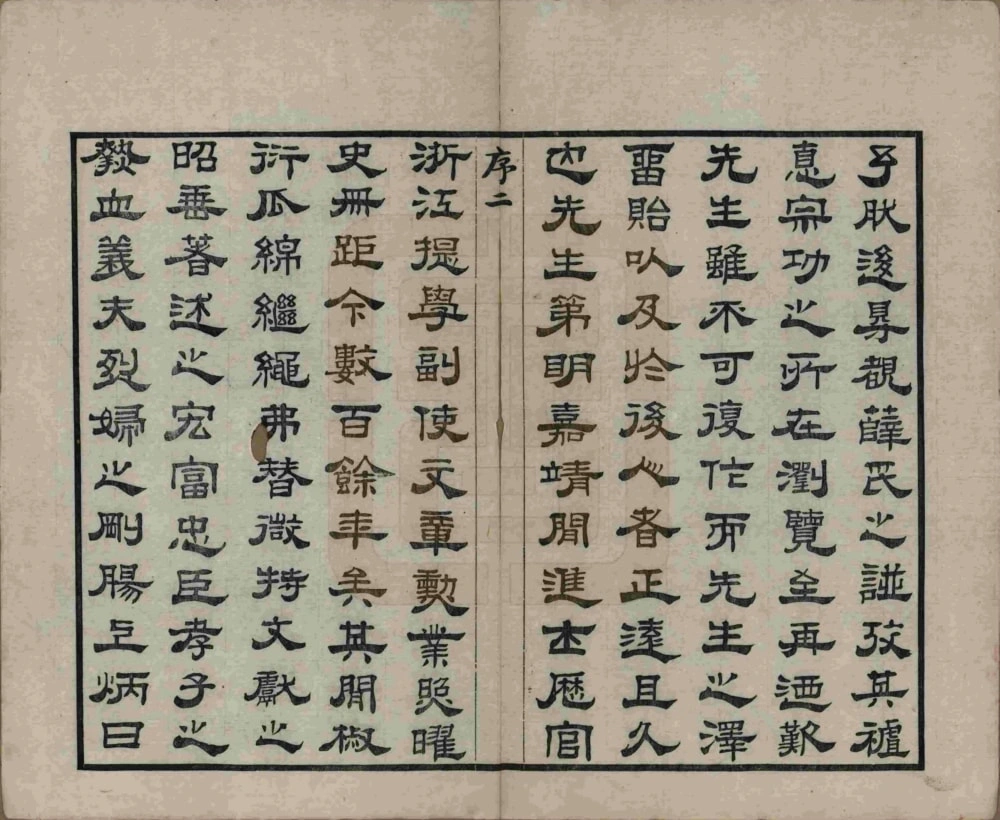 予肰後昮覩薛氏之譜攷其禋
息宗功之所在瀏覽至再迺歎
先生雖不可復作而先生之澤
畱貽以及於後之者正遠且久
也先生第明嘉靖間進士歷官
序二
浙江提學副使文章勳業照曜
史冊距今數百餘年矣其間椒
衍瓜綿繼繩弗替微特文獻之
昭垂著述之宏富忠臣孝子之
熱血義夫烈婦之剛腸上炳日